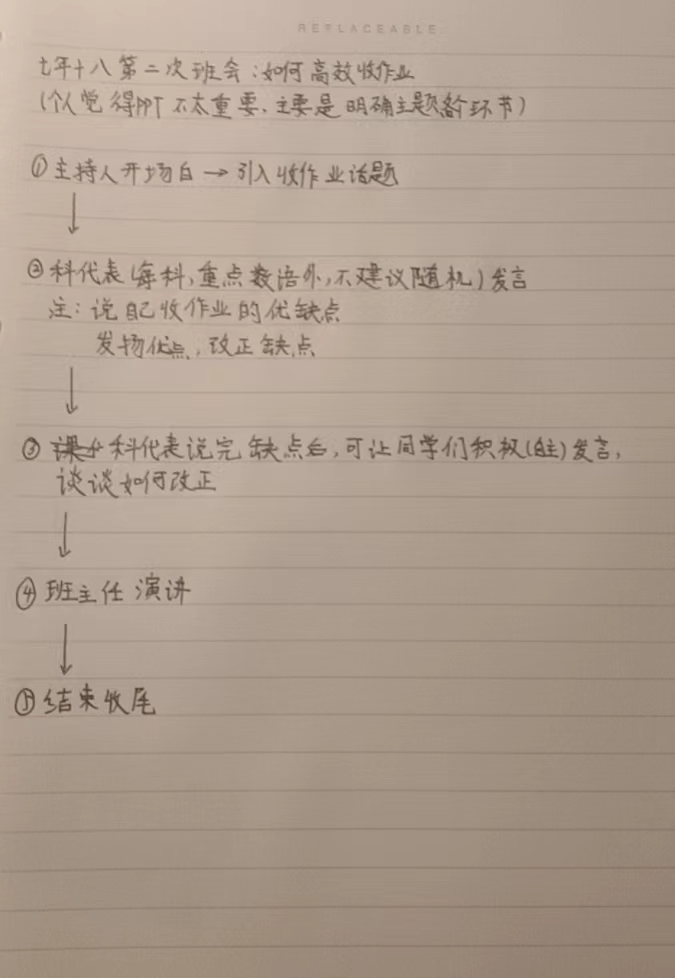 REPLACEABLE
七年十八第二次班会:如何高效收作业
(个人觉得PPT不太重要,主要是明确主题各环节)
①主持人开场白→引入收作业话题
↓
②科代表(每科,重点数语外,不建议随机)发言
注:说自己收作业的优缺点
发扬优点,改正缺点
↓
③科代表说完缺点后,可让同学们积极(自主)发言,
谈谈如何改正
↓
④班主任演讲
↓
⑤结束收尾